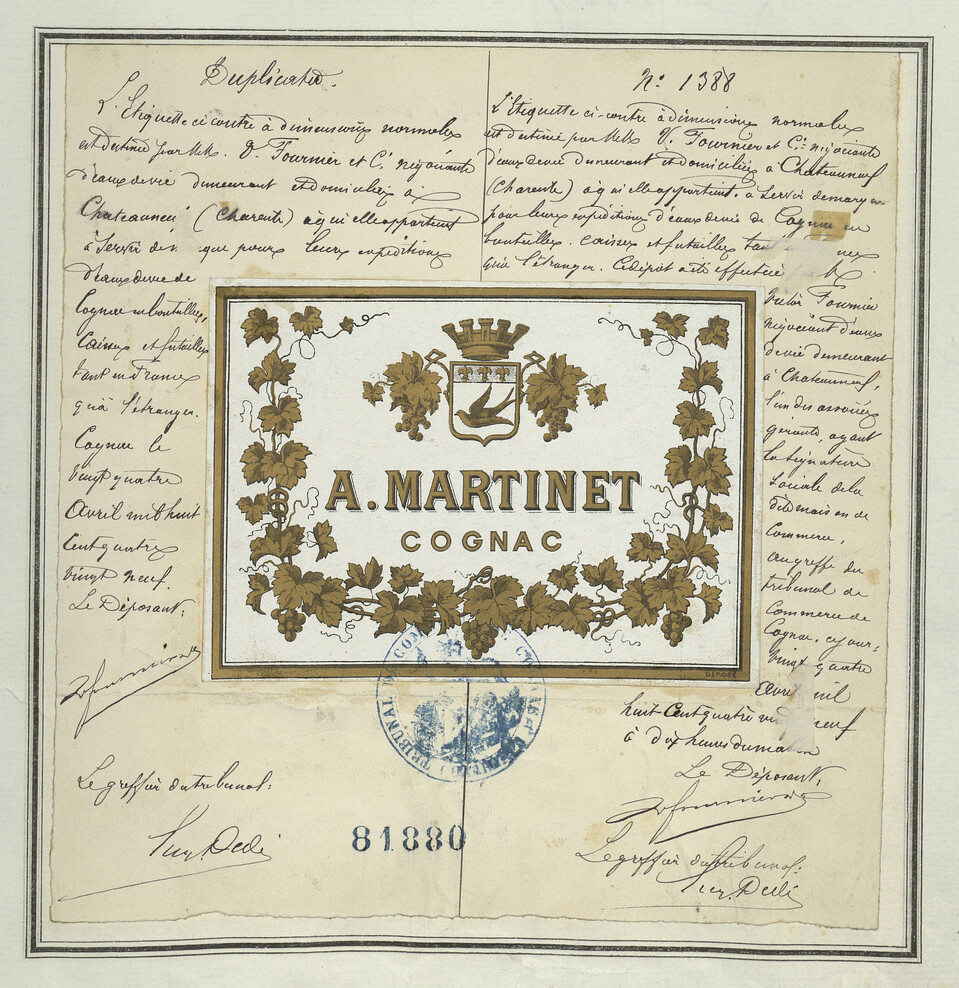 Duplicata.
L'Etiquette ci contre à dimensions normales
est destinée par M.M. V. Fournier et Cie négociants
d'eaux de vie demeurant et domiciliés à
Chateauneuf (Charente) à qui elle appartient
à servir de que pour leurs expéditions
d'eaux de vie de
Cognac en bouteilles,
Caisses et futailles
tant en France
qu'à l'étranger.
Cognac le
Vingt quatre
Avril mil huit
Cent quatre
Vingt neuf.
Le Déposant:
Le greffier du tribunal:
No 1388
L'Etiquette ci-contre à dimensions normales
est destinée par M.M. V. Fournier et Cie négociants
d'eaux de vie demeurant et domiciliés à Chateauneuf
(Charente) à qui elle appartient, à servir de marque
pour leurs expéditions d'eaux de vie de Cognac en
bouteilles, caisses et futailles tant
qu'à l'étranger. Ce dépôt a été effectué
Victor Fournier
négociant d'eaux
de vie demeurant
à Chateauneuf,
l'un des associés
gérants, ayant
la signature
sociale de la
dite maison de
Commerce,
au greffe du
tribunal de
Commerce de
Cognac, ce jour:
Vingt quatre
Avril mil
huit-Cent quatre vingt neuf
à dix heures du matin
Le Déposant:
Le greffier du tribunal:
A. MARTINET
COGNAC
DÉPOSÉ
TRIBUNAL DE COM
81880